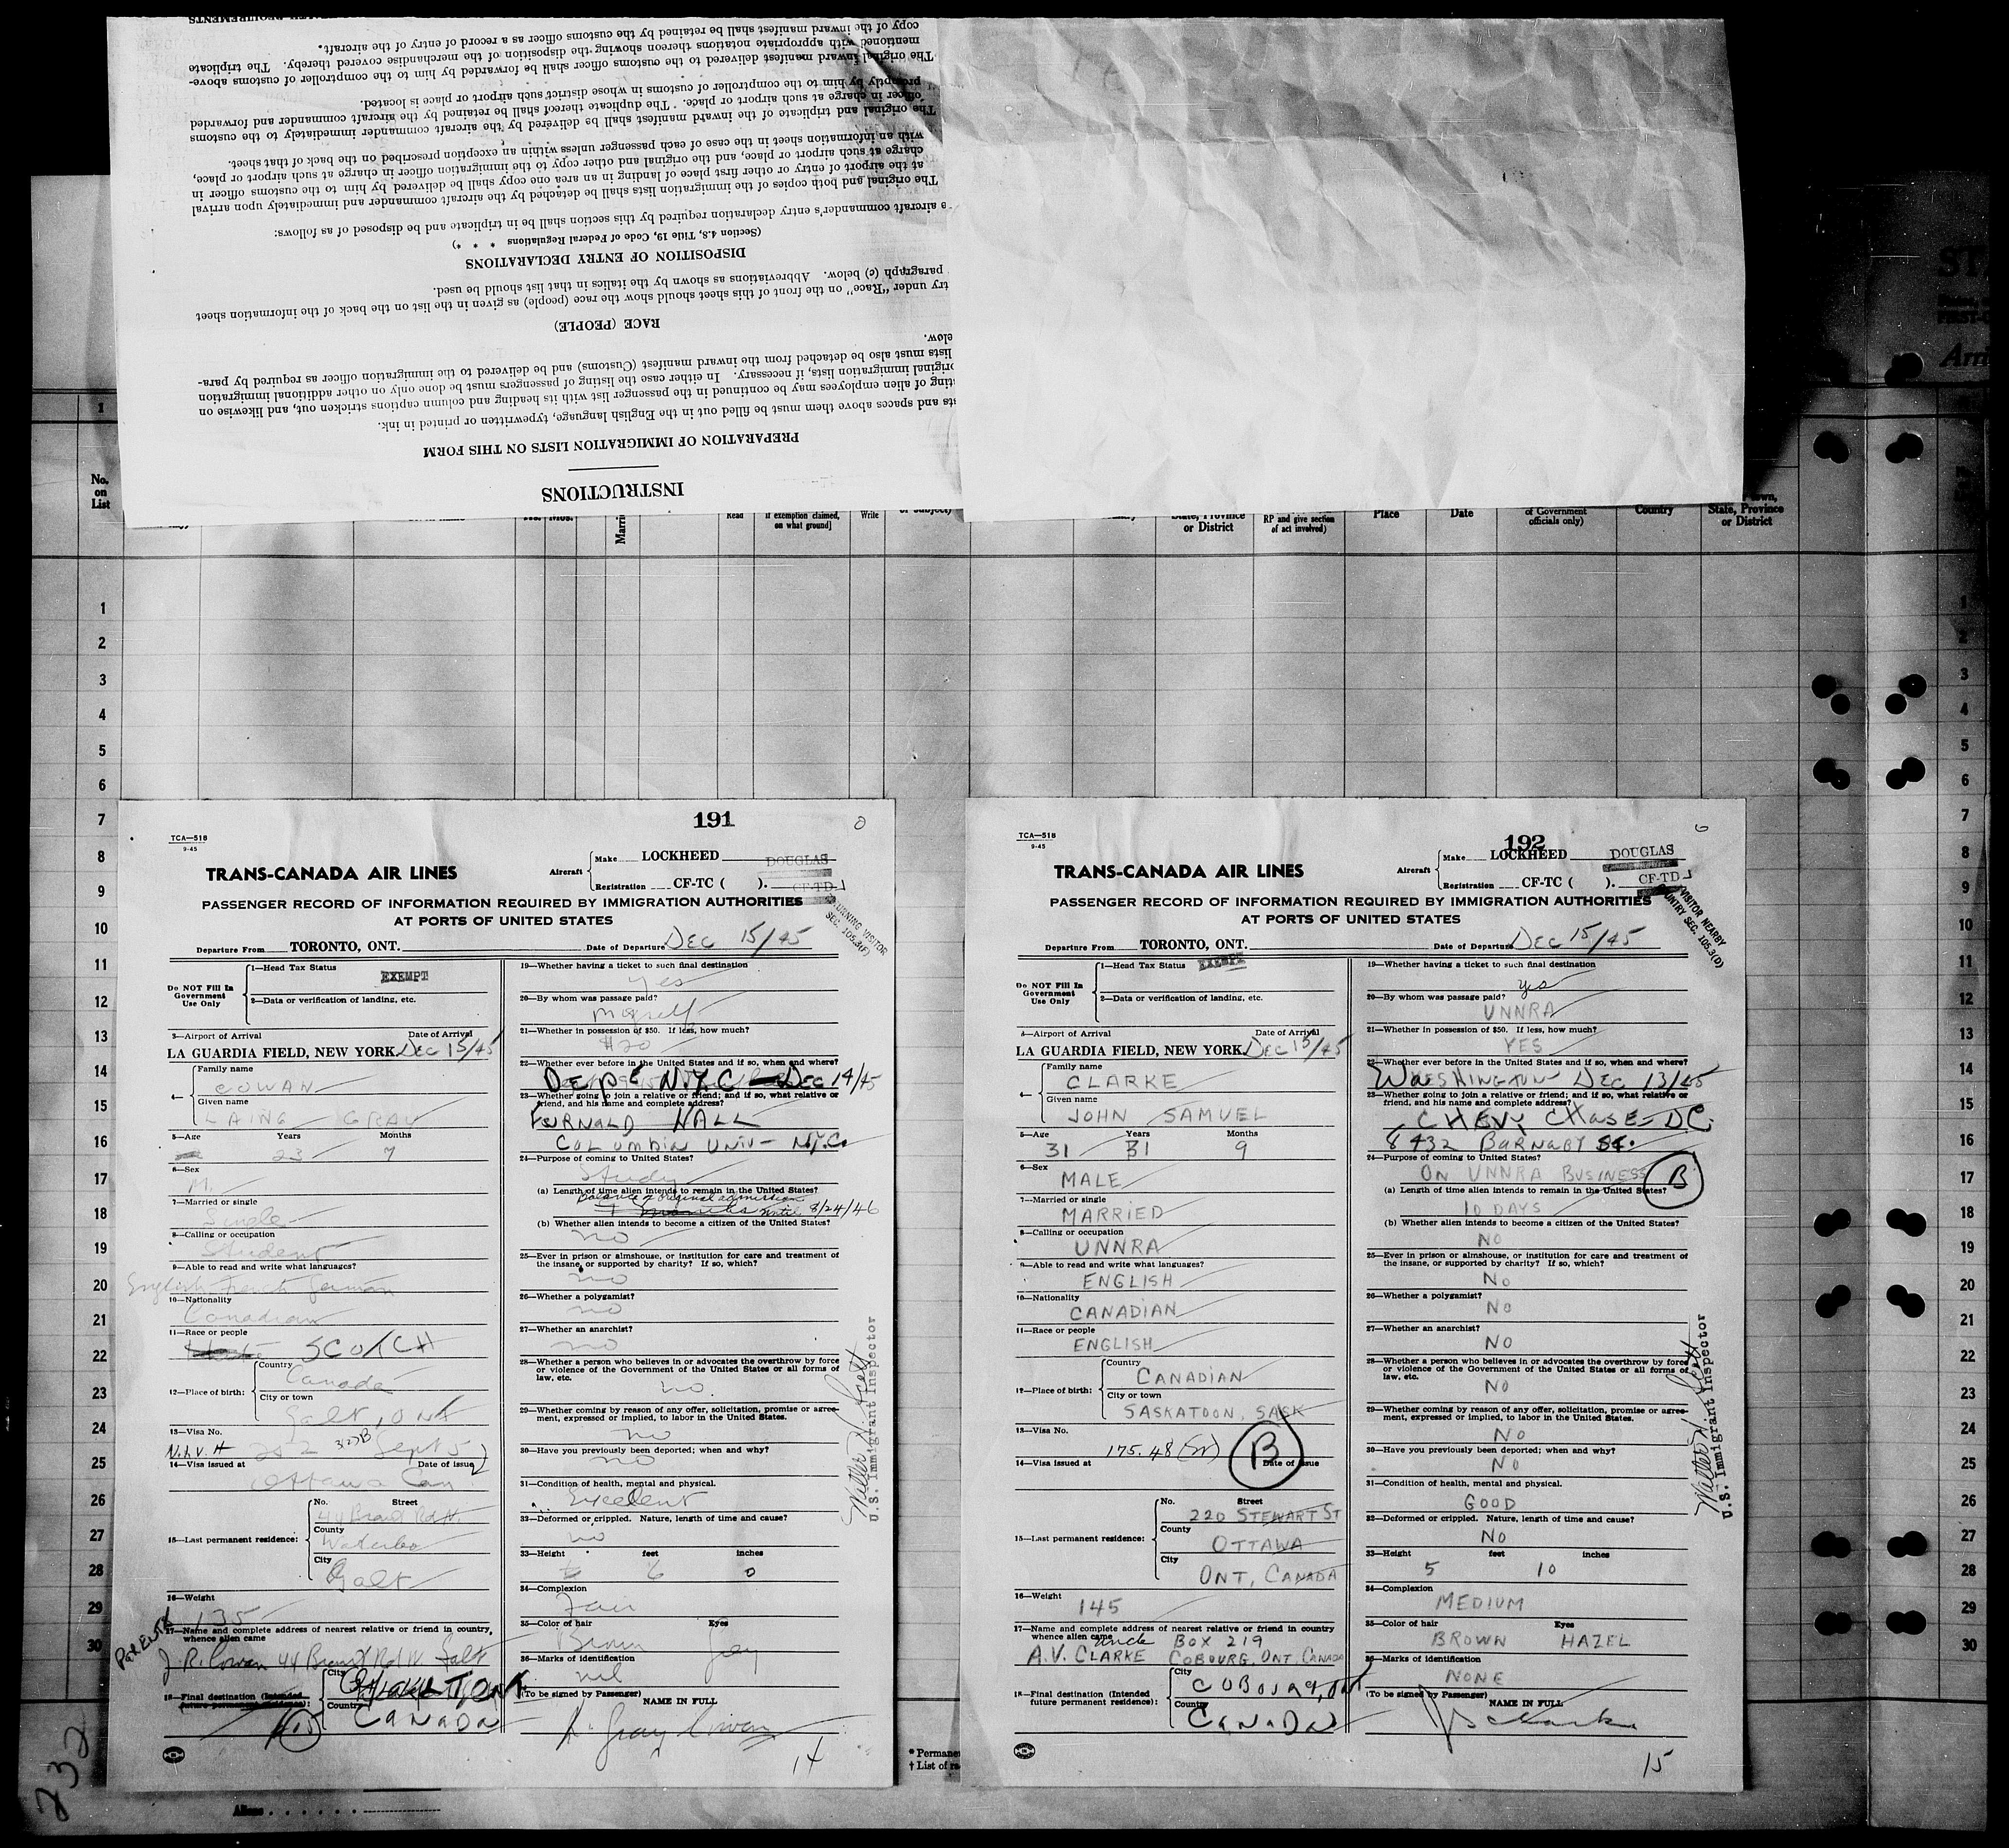 INSTRUCTIONS
PREPARATION OF IMMIGRATION LISTS ON THIS FORM
ts and spaces above them must be filled out in the English language, typewritten or printed in ink.
ting of alien employees may be continued in the passenger list with its heading and column captions stricken out, and likewise on
original immigration lists, if necessary. In either case the listing of passengers must be done only on other additional immigration
lists must also be detached from the inward manifest (Customs) and be delivered to the immigration officer as required by para-
elow.
RACE (PEOPLE)
try under "Race" on the front of this sheet should show the race (people) as given in the list on the back of the information sheet
paragraph (c) below. Abbreviations as shown by the italics in that list should be used.
DISPOSITION OF ENTRY DECLARATIONS
(Section 4.8, Title 19, Code of Federal Regulations * * *)
e aircraft commander's entry declaration required by this section shall be in triplicate and be disposed of as follows:
The original and both copies of the immigration lists shall be detached by the aircraft commander and immediately upon arrival
at the airport of entry or other first place of landing in an area one copy shall be delivered by him to the customs officer in
charge at such airport or place, and the original and other copy to the immigration officer in charge at such airport or place,
with an information sheet in the case of each passenger unless within an exception prescribed on the back of that sheet.
The original and triplicate of the inward manifest shall be delivered by the aircraft commander immediately to the customs
officer in charge at such airport or place. The duplicate thereof shall be retained by the aircraft commander and forwarded
promptly by him to the comptroller of customs in whose district such airport or place is located.
The original inward manifest delivered to the customs officer shall be forwarded by him to the comptroller of customs above-
mentioned with appropriate notations thereon showing the disposition of the merchandise covered thereby. The triplicate
copy of the inward manifest shall be retained by the customs officer as a record of entry of the aircraft.
REQUIREMENTS
No. on List
Read
if exemption claimed, on what ground]
Write
or subject)
State, Province or District
RP and give section of act involved)
Place
Date
of Government officials only)
Country
State, Province or District
1
2
3
4
5
6
7
8
9
10
11
12
13
14
15
16
17
18
19
20
21
22
23
24
25
26
27
28
29
30
191
TCA—518
9-45
TRANS-CANADA AIR LINES
Aircraft
Make LOCKHEED DOUGLAS
Registration CF-TC ( ). CF-TD
PASSENGER RECORD OF INFORMATION REQUIRED BY IMMIGRATION AUTHORITIES
AT PORTS OF UNITED STATES
RETURNING VISITOR SEC. 105.3(F)
Departure From TORONTO, ONT. Date of Departure DEC 15/45
Do NOT Fill In Government Use Only
1—Head Tax Status EXEMPT
2—Data or verification of landing, etc.
3—Airport of Arrival Date of Arrival
LA GUARDIA FIELD, NEW YORK. DEC 15/45
4— Family name
COWAN
Given name
LAING GRAY
5—Age Years Months
23 7
6—Sex
M.
7—Married or single
Single
8—Calling or occupation
Student
9—Able to read and write what languages?
English French German
10—Nationality
Canadian
11—Race or people
SCOTCH
12—Place of birth: Country
Canada
City or town
Galt, Ont
13—Visa No.
14—Visa issued at Date of issue
Ottawa Can
15—Last permanent residence: No. Street
44 Brant Rd N.
County
Waterloo
City
Galt
16—Weight
135
17—Name and complete address of nearest relative or friend in country, whence alien came
PARENTS
J. R. Cowan 44 Brant Rd N. Galt
18—Final destination (Intended future permanent residence):
City
Country
CANADA
19—Whether having a ticket to such final destination
Yes
20—By whom was passage paid?
Myself
21—Whether in possession of $50. If less, how much?
$20
22—Whether ever before in the United States and if so, when and where?
Dept N.Y.C — DEC 14/45
23—Whether going to join a relative or friend; and if so, what relative or friend, and his name and complete address?
FURNALD HALL
COLUMBIA UNIV— N.Y.C.
24—Purpose of coming to United States?
Study
(a) Length of time alien intends to remain in the United States?
Balance of original admission
until 8/24/46
(b) Whether alien intends to become a citizen of the United States?
no
25—Ever in prison or almshouse, or institution for care and treatment of the insane, or supported by charity? If so, which?
no
26—Whether a polygamist?
no
27—Whether an anarchist?
no
28—Whether a person who believes in or advocates the overthrow by force or violence of the Government of the United States or all forms of law, etc.
no.
29—Whether coming by reason of any offer, solicitation, promise or agreement, expressed or implied, to labor in the United States.
no
30—Have you previously been deported; when and why?
no
31—Condition of health, mental and physical.
Excellent
32—Deformed or crippled. Nature, length of time and cause?
no
33—Height feet inches
6 0
34—Complexion
Fair
35—Color of hair Eyes
Brown Grey
36—Marks of identification
nil
(To be signed by Passenger) NAME IN FULL
L. Gray Cowan
14
U.S. Immigrant Inspector
192
TCA—518
9-45
TRANS-CANADA AIR LINES
Aircraft
Make LOCKHEED DOUGLAS
Registration CF-TC ( ). CF-TD
PASSENGER RECORD OF INFORMATION REQUIRED BY IMMIGRATION AUTHORITIES
AT PORTS OF UNITED STATES
VISITOR NEARBY COUNTRY SEC. 105.3(D)
Departure From TORONTO, ONT. Date of Departure DEC 15/45
Do NOT Fill In Government Use Only
1—Head Tax Status EXEMPT
2—Data or verification of landing, etc.
3—Airport of Arrival Date of Arrival
LA GUARDIA FIELD, NEW YORK. DEC 15/45
4— Family name
CLARKE
Given name
JOHN SAMUEL
5—Age Years Months
31 31 9
6—Sex
MALE
7—Married or single
MARRIED
8—Calling or occupation
UNNRA
9—Able to read and write what languages?
ENGLISH
10—Nationality
CANADIAN
11—Race or people
ENGLISH
12—Place of birth: Country
CANADIAN
City or town
SASKATOON, SASK
13—Visa No.
175.48
B
14—Visa issued at Date of issue
15—Last permanent residence: No. Street
220 STEWART ST
County
OTTAWA
City
ONT, CANADA
16—Weight
145
17—Name and complete address of nearest relative or friend in country whence alien came
uncle BOX 219
A.V. CLARKE COBOURG, ONT, CANADA
18—Final destination (Intended future permanent residence):
City
COBOURG, ONT
Country
CANADA
19—Whether having a ticket to such final destination
yes
20—By whom was passage paid?
UNNRA
21—Whether in possession of $50. If less, how much?
YES
22—Whether ever before in the United States and if so, when and where?
WASHINGTON DEC 13/45
23—Whether going to join a relative or friend; and if so, what relative or friend, and his name and complete address?
CHEVY CHASE, DC.
8432 BARNABY St.
24—Purpose of coming to United States?
ON UNNRA BUSINESS
B
(a) Length of time alien intends to remain in the United States?
10 DAYS
(b) Whether alien intends to become a citizen of the United States?
NO
25—Ever in prison or almshouse, or institution for care and treatment of the insane, or supported by charity? If so, which?
NO
26—Whether a polygamist?
NO
27—Whether an anarchist?
NO
28—Whether a person who believes in or advocates the overthrow by force or violence of the Government of the United States or all forms of law, etc.
NO
29—Whether coming by reason of any offer, solicitation, promise or agreement, expressed or implied, to labor in the United States.
NO
30—Have you previously been deported; when and why?
NO
31—Condition of health, mental and physical.
GOOD
32—Deformed or crippled. Nature, length of time and cause?
NO
33—Height feet inches
5 10
34—Complexion
MEDIUM
35—Color of hair Eyes
BROWN HAZEL
36—Marks of identification
NONE
(To be signed by Passenger) NAME IN FULL
JS Clarke
15
U.S. Immigrant Inspector
232
* Permane
† List of ra
Aliens